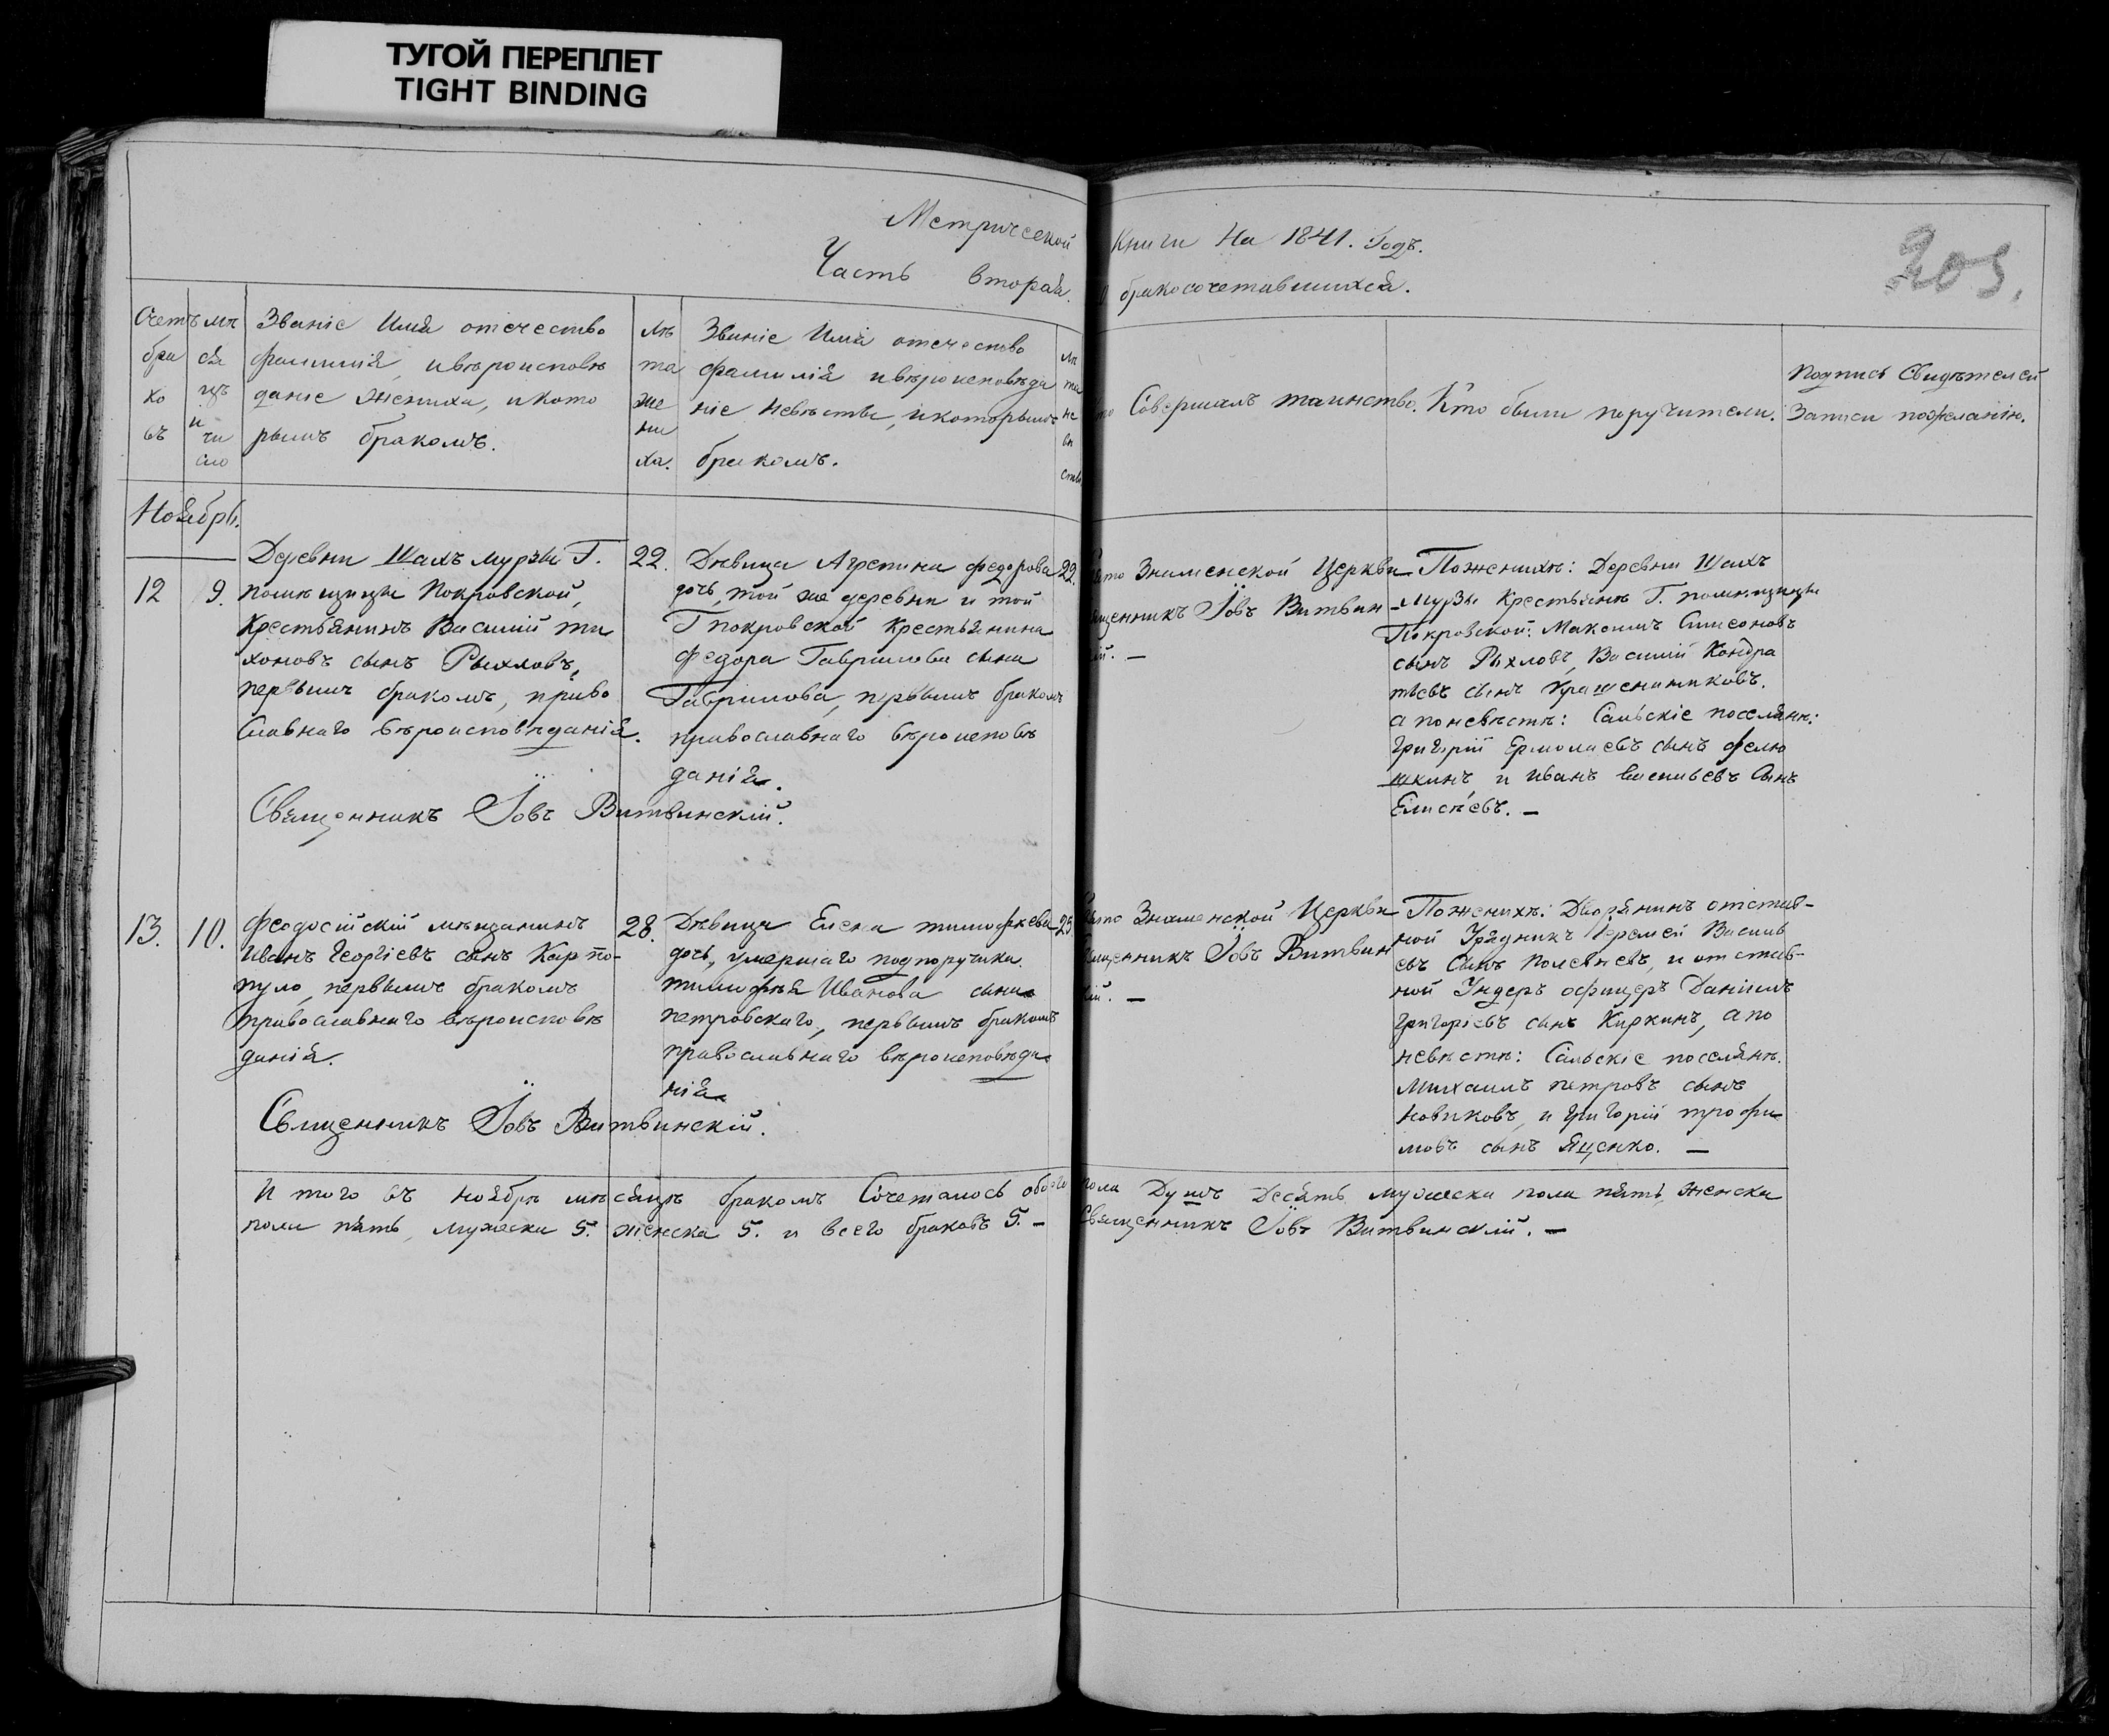 ТУГОЙ ПЕРЕПЛЕТ
TIGHT BINDING
Метрической Книги на 1841. Годъ.
Часть вторая. о бракосочетавшихся.
205.
Счетъ
бра
ко
въ
мѣ
ся
цъ
и
чи
сло
Званіе Имя отечество
фамилія, ивѣроисповѣ
даніе жениха, икото
рымъ бракомъ.
лѣ
та
же
ни
ха.
Званіе Имя отечество
фамилія ивѣроисповѣда
ніе невѣсты, икоторымъ
бракомъ.
лѣ
та
не
вѣ
сты
Кто Совершалъ таинство.
Кто были поручители.
Подпись Свидѣтелей
Записи пожеланію.
Ноябрь.
12
9.
Деревни Шахъ мурзы Г.
помѣщицы Покровской,
Крестьянинъ Василій ти
хоновъ сынъ Рыхловъ,
первымъ бракомъ, право
славнаго вѣроисповѣданія.
22.
Дѣвица Агрепина федорова
дочь, той же деревни и той
Г покровской Крестьянина
федора Гаврилова сына
Гаврилова, первымъ бракомъ
православнаго вѣроисповѣ
данія.
22.
Свято Знаменской Церкви
Священникъ Іовъ Витвин
скій. —
Поженихѣ: Деревни Шахъ
Мурзы Крестьянѣ Г. помѣщицы
Покровской: Максимъ Симеоновъ
сынъ Рыхловъ, Василій Кондра
тьевъ сынъ Крашениниковъ.
а поневѣстѣ: Сальскіе поселянѣ:
Григорій Ермолаевъ сынъ фелю
шкинъ, и иванъ васильевъ Сынъ
Елисѣевъ. —
Священникъ Іовъ Витвинскій.
13.
10.
Феодосійскій мѣщанинъ
Иванъ Георгіевъ сынъ Карпо-
пуло, первымъ бракомъ
православнаго вѣроисповѣ
данія.
28.
Дѣвица Елена тимофѣева
дочь, умершаго подпоручика
тимофѣя Иванова сына
петровскаго, первымъ бракомъ
православнаго вѣроисповѣда
нія
25
Свято Знаменской Церкви
Священникъ Іовъ Витвин
скій. —
Поженихѣ: Дворянинъ отстав-
ной Урядникъ Иеремей Васильо
евъ Сынъ Полевневъ, и отстав-
ной Ундеръ офицеръ Даніилъ
Григоріевъ сынъ Киркинъ, а по
невѣстѣ: Сальскіе поселянѣ.
Михаилъ петровъ сынъ
Новиковъ, и Григорій трофи
мовъ сынъ Яценко. —
Священникъ Іовъ Витвинскій.
И того въ ноябрѣ мѣсяцѣ бракомъ Сочеталось обоего пола Душъ Десять мужеска пола пять, женска
пола пять, мужеска 5. женска 5. и всего браковъ 5. — Священникъ Іовъ Витвинскій. —